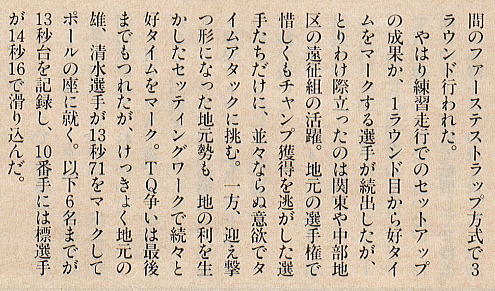 間のファーステストラップ方式で3
ラウンド行われた。
やはり練習走行でのセットアップ
の成果か、1ラウンド目から好タイ
ムをマークする選手が続出したが、
とりわけ際立ったのは関東や中部地
区の遠征組の活躍。地元の選手権で
惜しくもチャンプ獲得を逃がした選
手たちだけに、並々ならぬ意欲でタ
イムアタックに挑む。一方、迎え撃
つ形になった地元勢も、地の利を生
かしたセッティングワークで続々と
好タイムをマーク。TQ争いは最後
までもつれたが、けっきょく地元の
雄、清水選手が13秒71をマークして
ポールの座に就く。以下6名までが
13秒台を記録し、10番手には標選手
が14秒16で滑り込んだ。